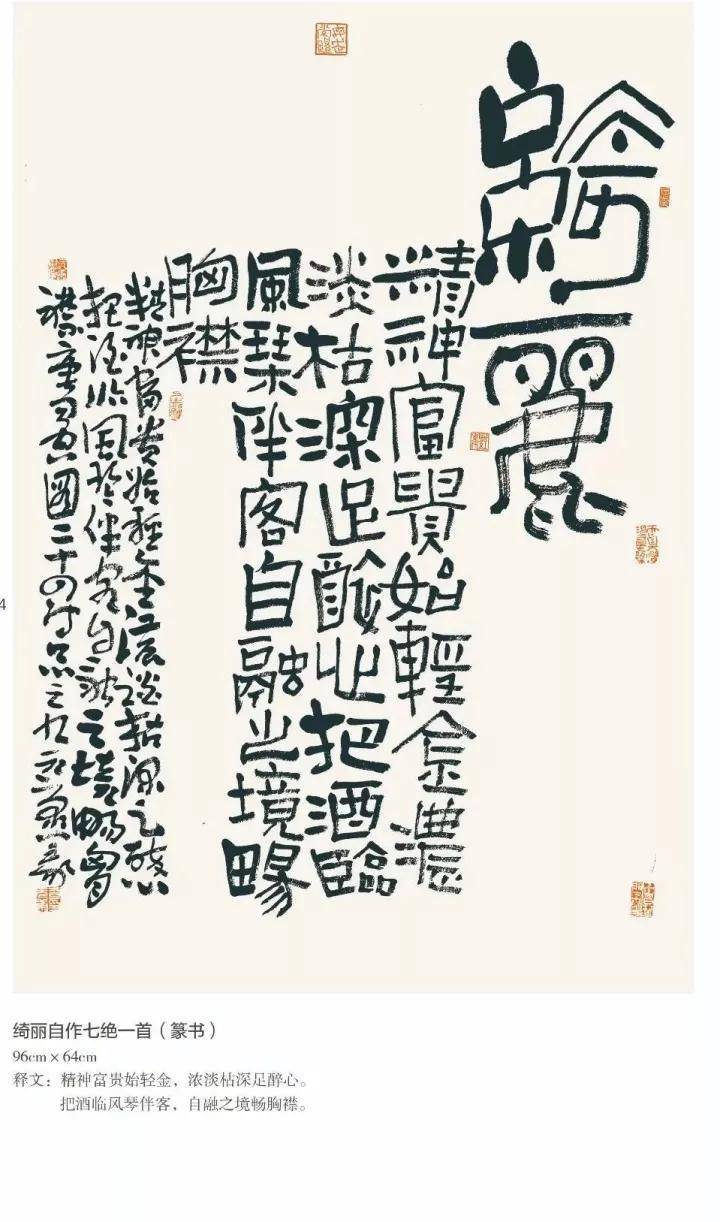 綺麗
精神富貴始輕金濃
淡枯深足醉心把酒臨
風琴伴客自融之境暢
胸襟
精神富貴始輕金濃淡枯深足醉心
把酒臨風琴伴客自融之境暢胸
襟唐司空圖二十四詩品之九
4
绮丽自作七绝一首（篆书）
96cm×64cm
释文：精神富贵始轻金，浓淡枯深足醉心。
把酒临风琴伴客，自融之境畅胸襟。